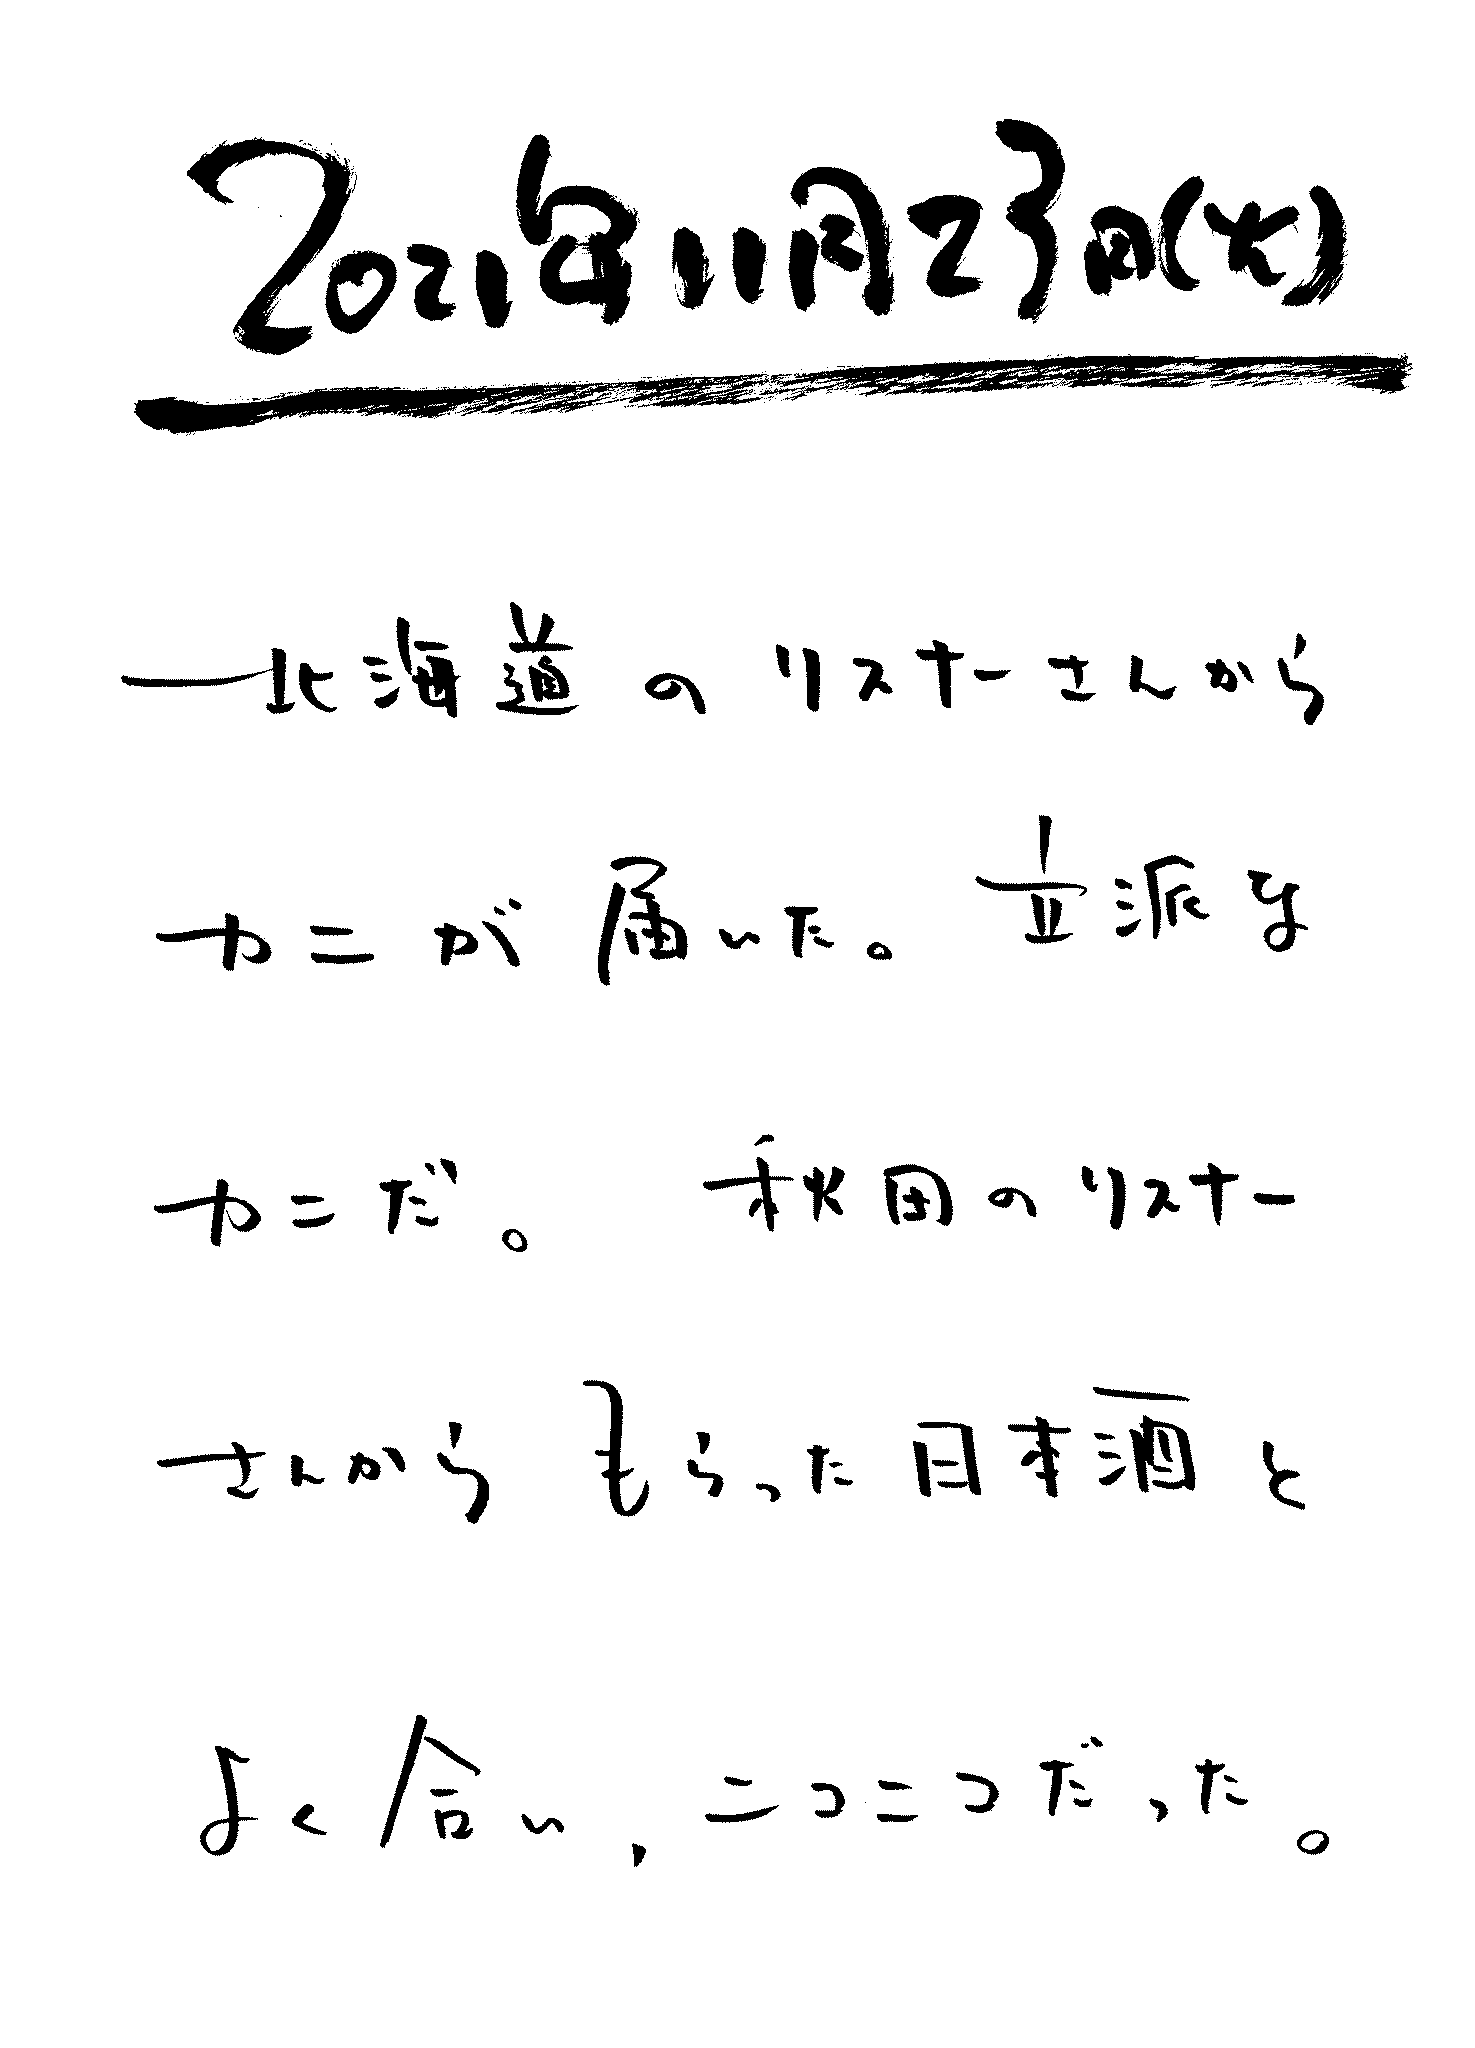 2021年11月23日(火)
北海道のリスナーさんから
カニが届いた。立派な
カニだ。 秋田のリスナー
さんからもらった日本酒と
よく合い、ニコニコだった。